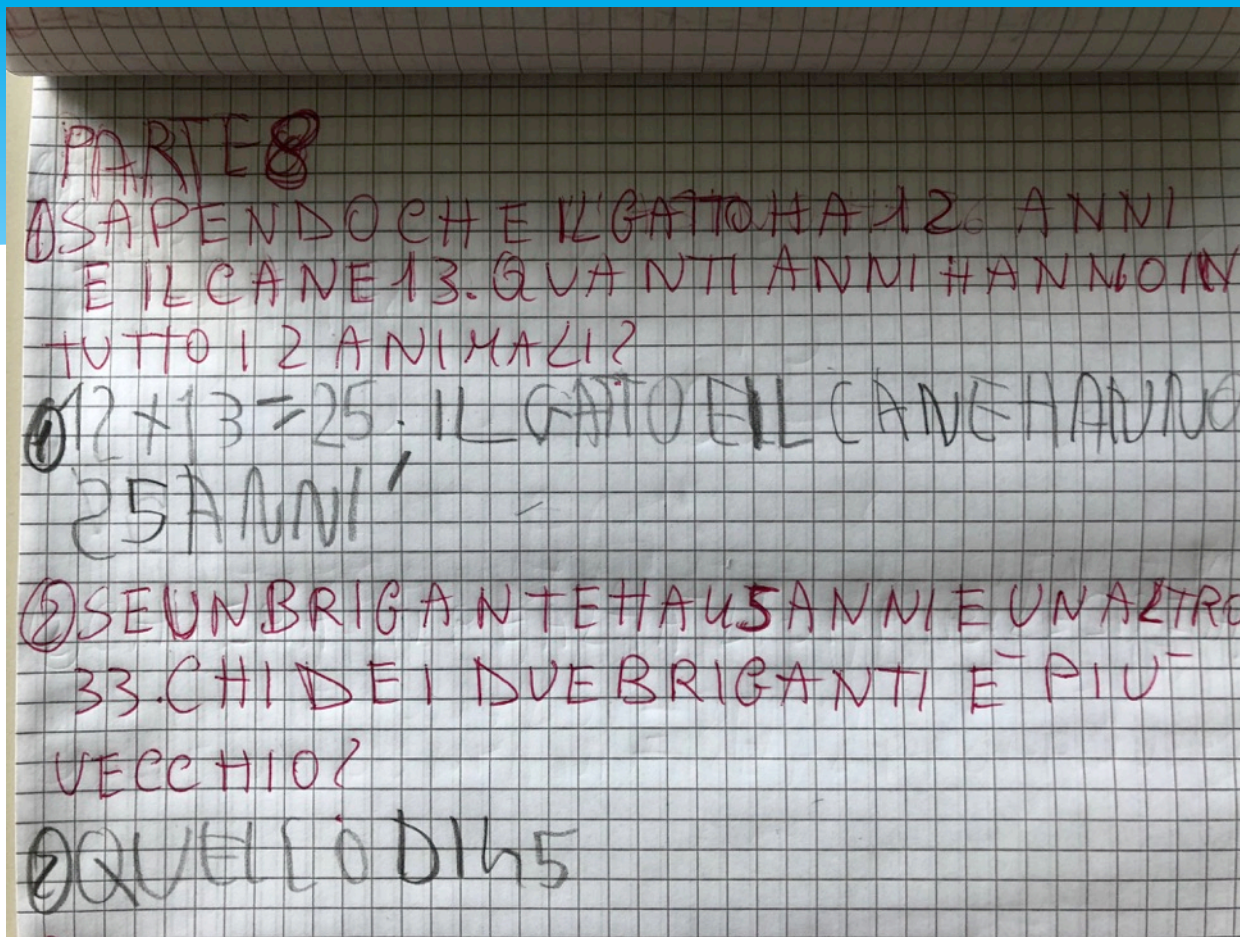 PARTE 8
1 SAPENDO CHE IL GATTO HA 12 ANNI
E IL CANE 13. QUANTI ANNI HANNO IN
TUTTO I 2 ANIMALI?
1 12+13=25. IL GATTO E IL CANE HANNO
25 ANNI
2 SE UN BRIGANTE HA 45 ANNI E UN ALTRO
33. CHI DEI DUE BRIGANTI E PIU
VECCHIO?
2 QUELLO DI 45